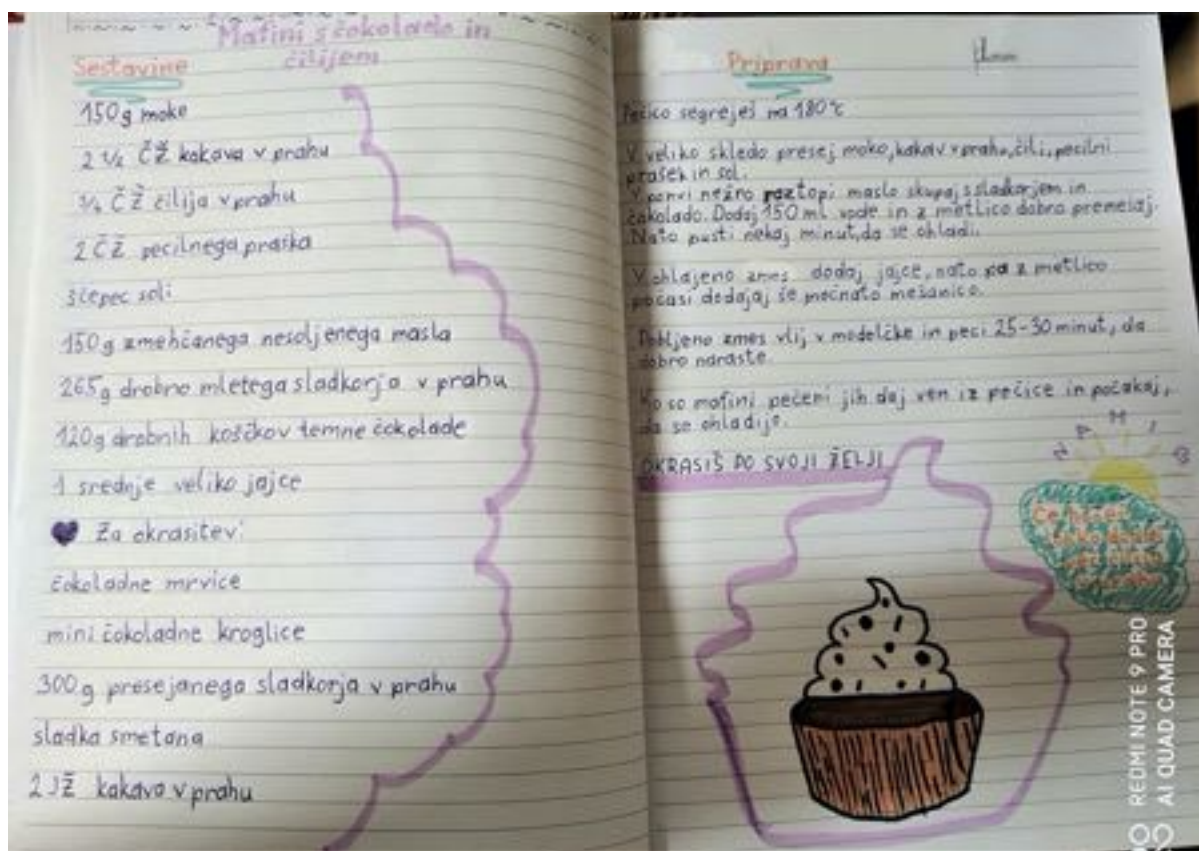 Mafini s čokolado in
čilijem
Sestavine
150g moke
2 1/2 ČŽ kakava v prahu
3/4 ČŽ čilija v prahu
2 ČŽ pecilnega praška
ščepec soli
150g zmehčanega nesoljenega masla
265g drobno mletega sladkorja v prahu
120g drobnih koščkov temne čokolade
1 srednje veliko jajce
Za okrasitev:
čokoladne mrvice
mini čokoladne kroglice
300g presejanega sladkorja v prahu
sladka smetana
2 JŽ kakava v prahu
Priprava
Pečico segreješ na 180°C
V veliko skledo presej moko, kakav v prahu, čili, pecilni
prašek in sol.
V ponvi nežno raztopi maslo skupaj s sladkorjem in
čokolado. Dodaj 150 ml vode in z metlico dobro premešaj.
Nato pusti nekaj minut, da se ohladi.
V ohlajeno zmes dodaj jajce, nato pa z metlico
počasi dodajaj še močnato mešanico.
Dobljeno zmes vlij v modelčke in peci 25-30 minut, da
dobro naraste.
Ko so mafini pečeni jih daj ven iz pečice in počakaj,
da se ohladijo.
OKRASIŠ PO SVOJI ŽELJI
NAMIG
Če hočeš
lahko dodaš
več čilija
REDMI NOTE 9 PRO
AI QUAD CAMERA